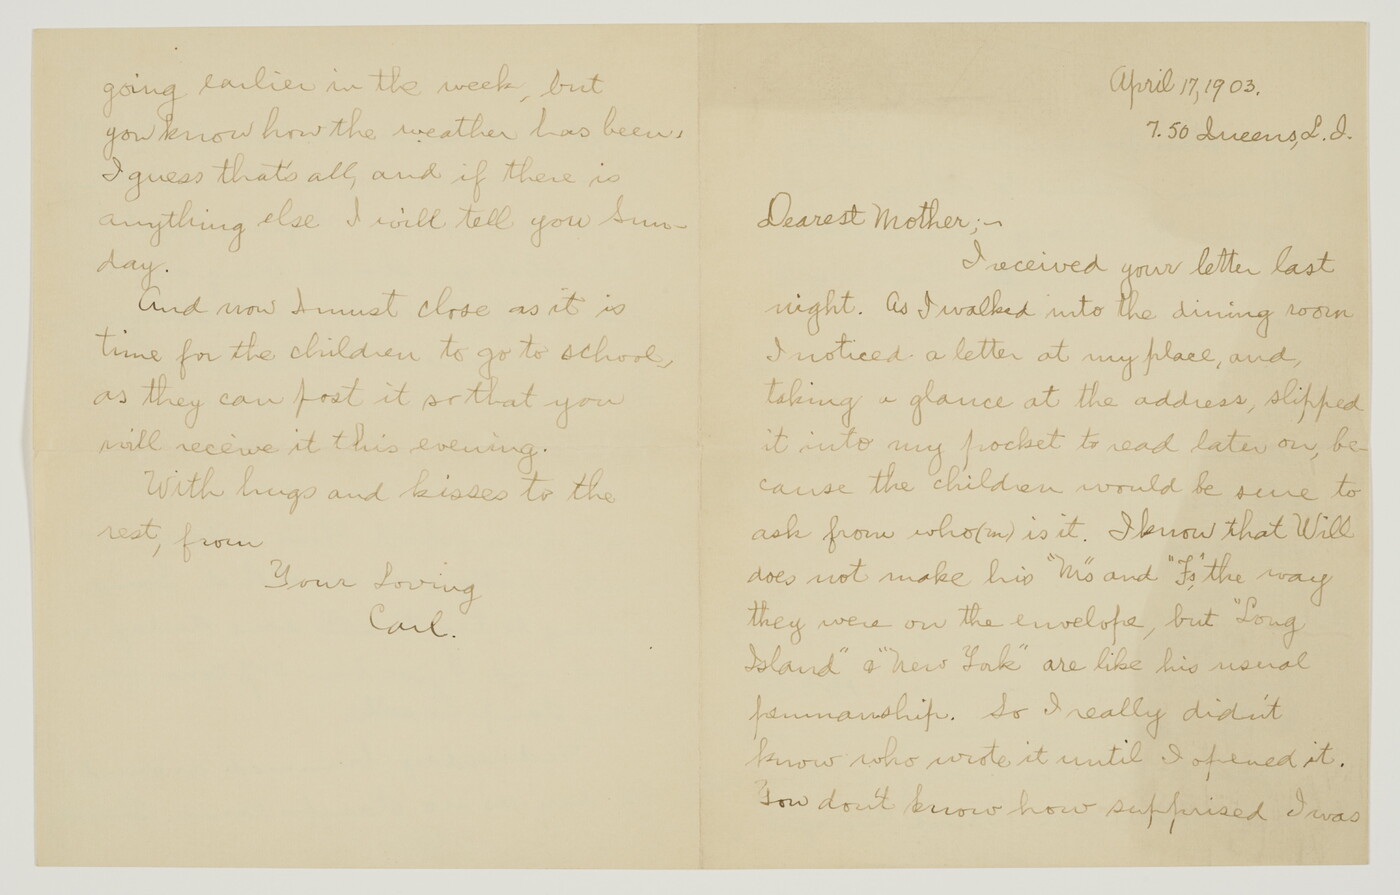 April 17, 1903.
7.50 Queens, L. I.
Dearest Mother;—
I received your letter last
night. As I walked into the dining room
I noticed a letter at my place, and,
taking a glance at the address, slipped
it into my pocket to read later on, be-
cause the children would be sure to
ask from who(m) is it. I know that Will
does not make his "M's" and "F's," the way
they were on the envelope, but "Long
Island" & "New York" are like his usual
penmanship. So I really didn't
know who wrote it until I opened it.
You don't know how supprised I was
going earlier in the week, but
you know how the weather has been.
I guess that's all, and if there is
anything else I will tell you Sun-
day.
And now I must close as it is
time for the children to go to school,
as they can post it so that you
will receive it this evening.
With hugs and kisses to the
rest, from
Your Loving
Carl.